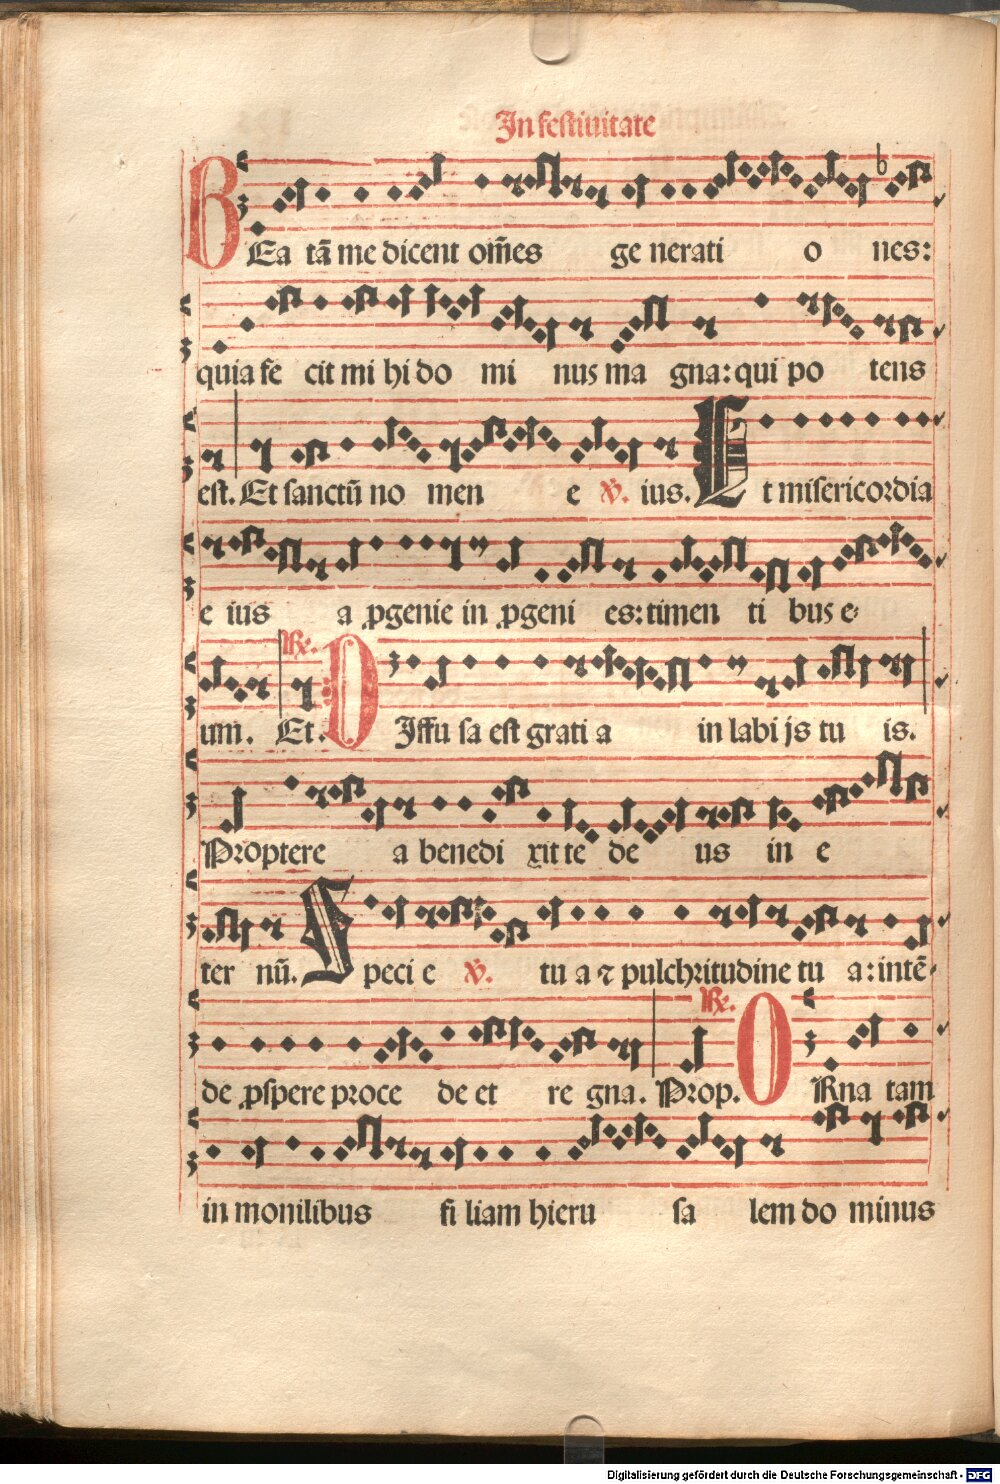 In festiuitate
BEa tā me dicent om̄es ge nerati o nes:
quia fe cit mi hi do mi nus ma gna: qui po tens
est. Et sanctū no men e ℣. ius. Et misericordia
e ius a ꝓgenie in ꝓgeni es: timen ti bus e-
um. Et. ℞. DIffu sa est grati a in labi js tu is.
Proptere a benedi xit te de us in e
ter nū. Speci e ℣. tu a ⁊ pulchritudine tu a: intē-
de ꝓspere proce de et re gna. Prop. ℞. ORna tam
in monilibus fi liam hieru sa lem do minus
Digitalisierung gefördert durch die Deutsche Forschungsgemeinschaft - DFG